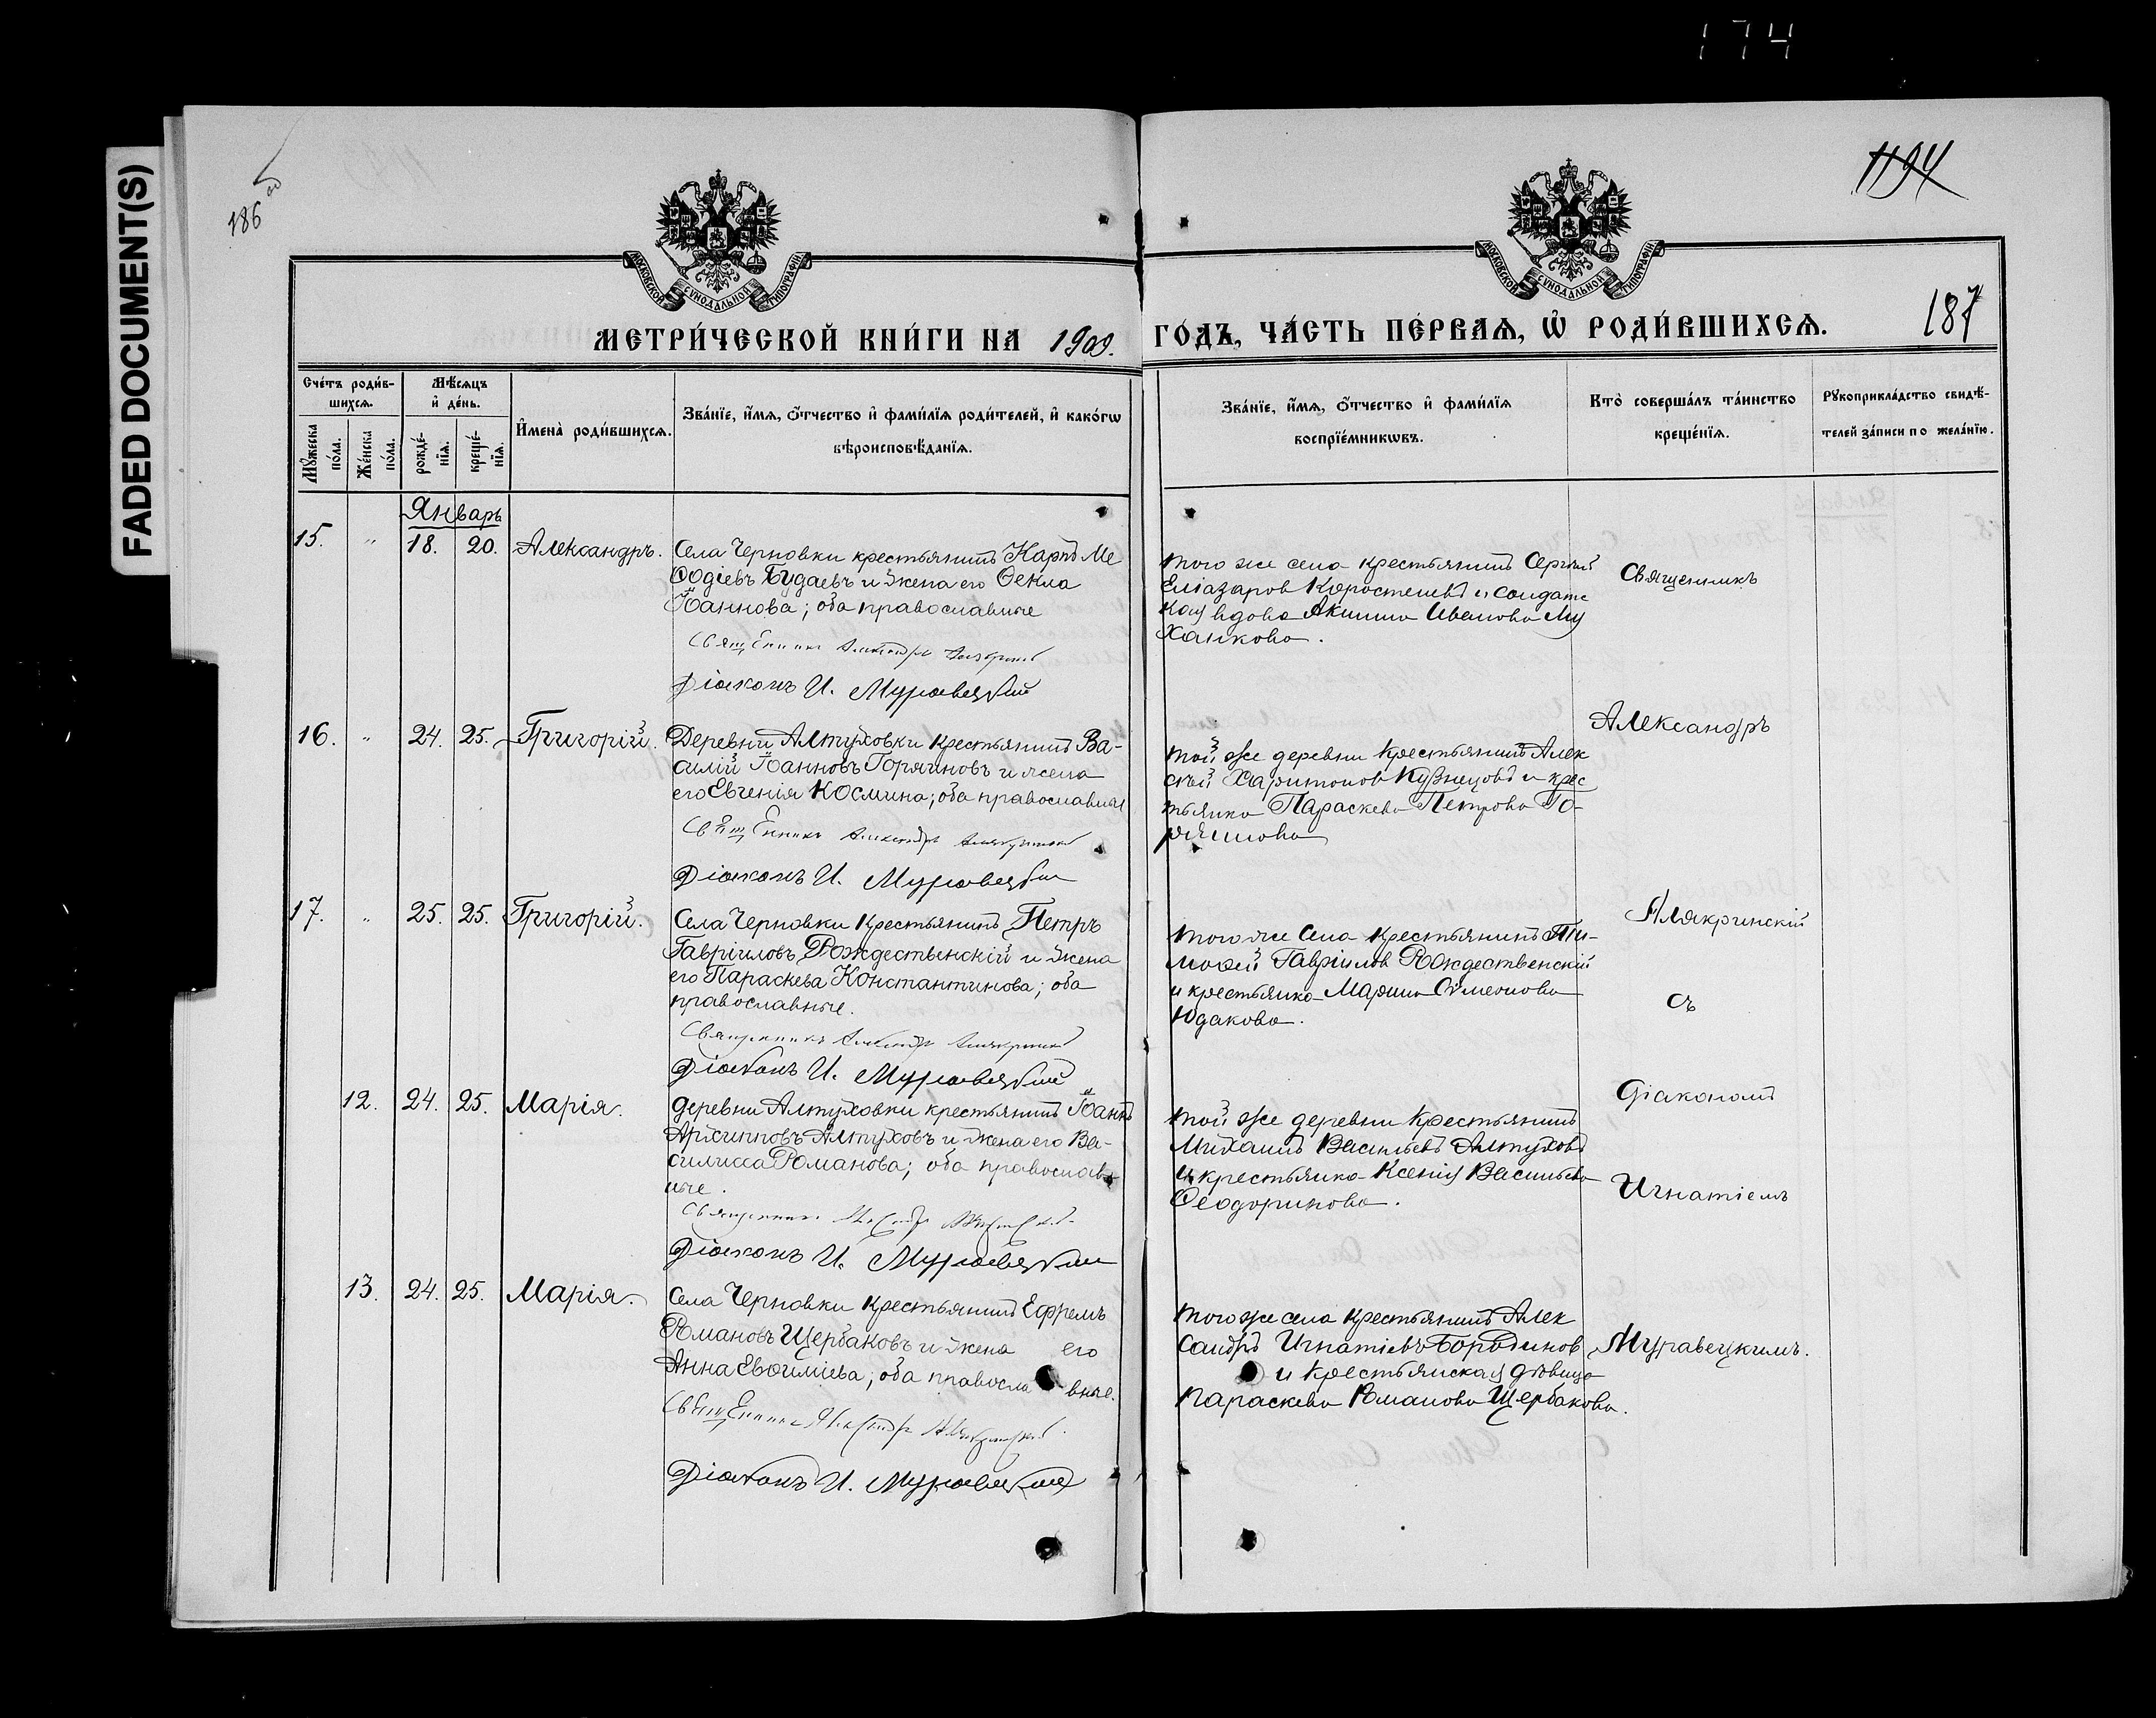 174
FADED DOCUMENT(S)
186 об
1194
МОСКОВСКОЙ СѴНОДАЛЬНОЙ ТИПОГРАФІИ
МОСКОВСКОЙ СѴНОДАЛЬНОЙ ТИПОГРАФІИ
МЕТРИ́ЧЕСКОЙ КНИ́ГИ НА 1909. ГО́ДЪ, ЧА́СТЬ ПЕ́РВАѦ, Ѽ РОДИ́ВШИХСѦ. 187
Сче́тъ роди́в-
шихсѧ.
Мꙋ́жеска
по́ла.
Же́нска
по́ла.
Мѣ́сѧцъ
и҆ де́нь.
рожде́-
нїѧ.
креще́-
нїѧ.
И҆мена̀ роди́вшихсѧ.
Зва́нїе, и҆́мѧ, ѻ҆́тчество и҆ фами́лїѧ роди́телей, и҆ како́гѡ
вѣроисповѣ́данїѧ.
Зва́нїе, и҆́мѧ, ѻ҆́тчество и҆ фами́лїѧ
воспрїе́мникѡвъ.
Кто̀ соверша́лъ та́инство
креще́нїѧ.
Рꙋкоприкла́дство свидѣ́-
телей за́писи по жела́нїю.
Январь
15. " 18. 20. Александръ.
Села Черновки крестьянинъ Карпъ Ме
ѳодіевъ Будаевъ и жена его Ѳекла
Іоаннова; оба православные
Священникъ Александръ
Діаконъ И. Муравецкій
того же села крестьянинъ Сергій
Еліазаров Коростелевъ и солдатс
кая вдова Акилина Иванова Му
ханкова.
16. " 24. 25. Григорій.
Деревни Алтуховки крестьянинъ Ва-
силій Іоанновъ Горяиновъ и жена
его Евгенія Космина; оба православные
Священникъ Александръ Алякринскій
Діаконъ И. Муравецкій
той же деревни крестьянинъ Алек
сѣй Харитонов Кузнецовъ и крес
тьянка Параскева Петрова Го-
ряинова
17. " 25. 25. Григорій.
Села Черновки крестьянинъ Петръ
Гавріиловъ Рождественскій и жена
его Параскева Константинова; оба
православные.
Священникъ Александръ Алякринскій
Діаконъ И. Муравецкій
того же села крестьянинъ Ти-
моѳей Гавріилов Рождественскій
и крестьянка Марина Сѵмеонова
Юдакова.
12. 24. 25. Марія.
деревни Алтуховки крестьянинъ Іоаннъ
Архипповъ Алтуховъ и жена его Ва-
силисса Романова; оба православ
ные.
Священникъ Александръ Алякринскій
Діаконъ И. Муравецкій
той же деревни крестьянинъ
Михаилъ Васильевъ Алтуховъ
и крестьянка Ксенія Васильева
Ѳеодоринова.
13. 24. 25. Марія.
Села Черновки крестьянинъ Ефремъ
Романовъ Щербаковъ и жена его
Анна Евѳиміева; оба православные.
Священникъ Александръ Алякринскій
Діаконъ И. Муравецкій
того же села крестьянинъ Алек
сандръ Игнатіевъ Бородинов
и крестьянская дѣвица
Параскева Романова Щербакова.
Священникъ
Александръ
Алякринскій
съ
Діакономъ
Игнатіемъ
Муравецкимъ.